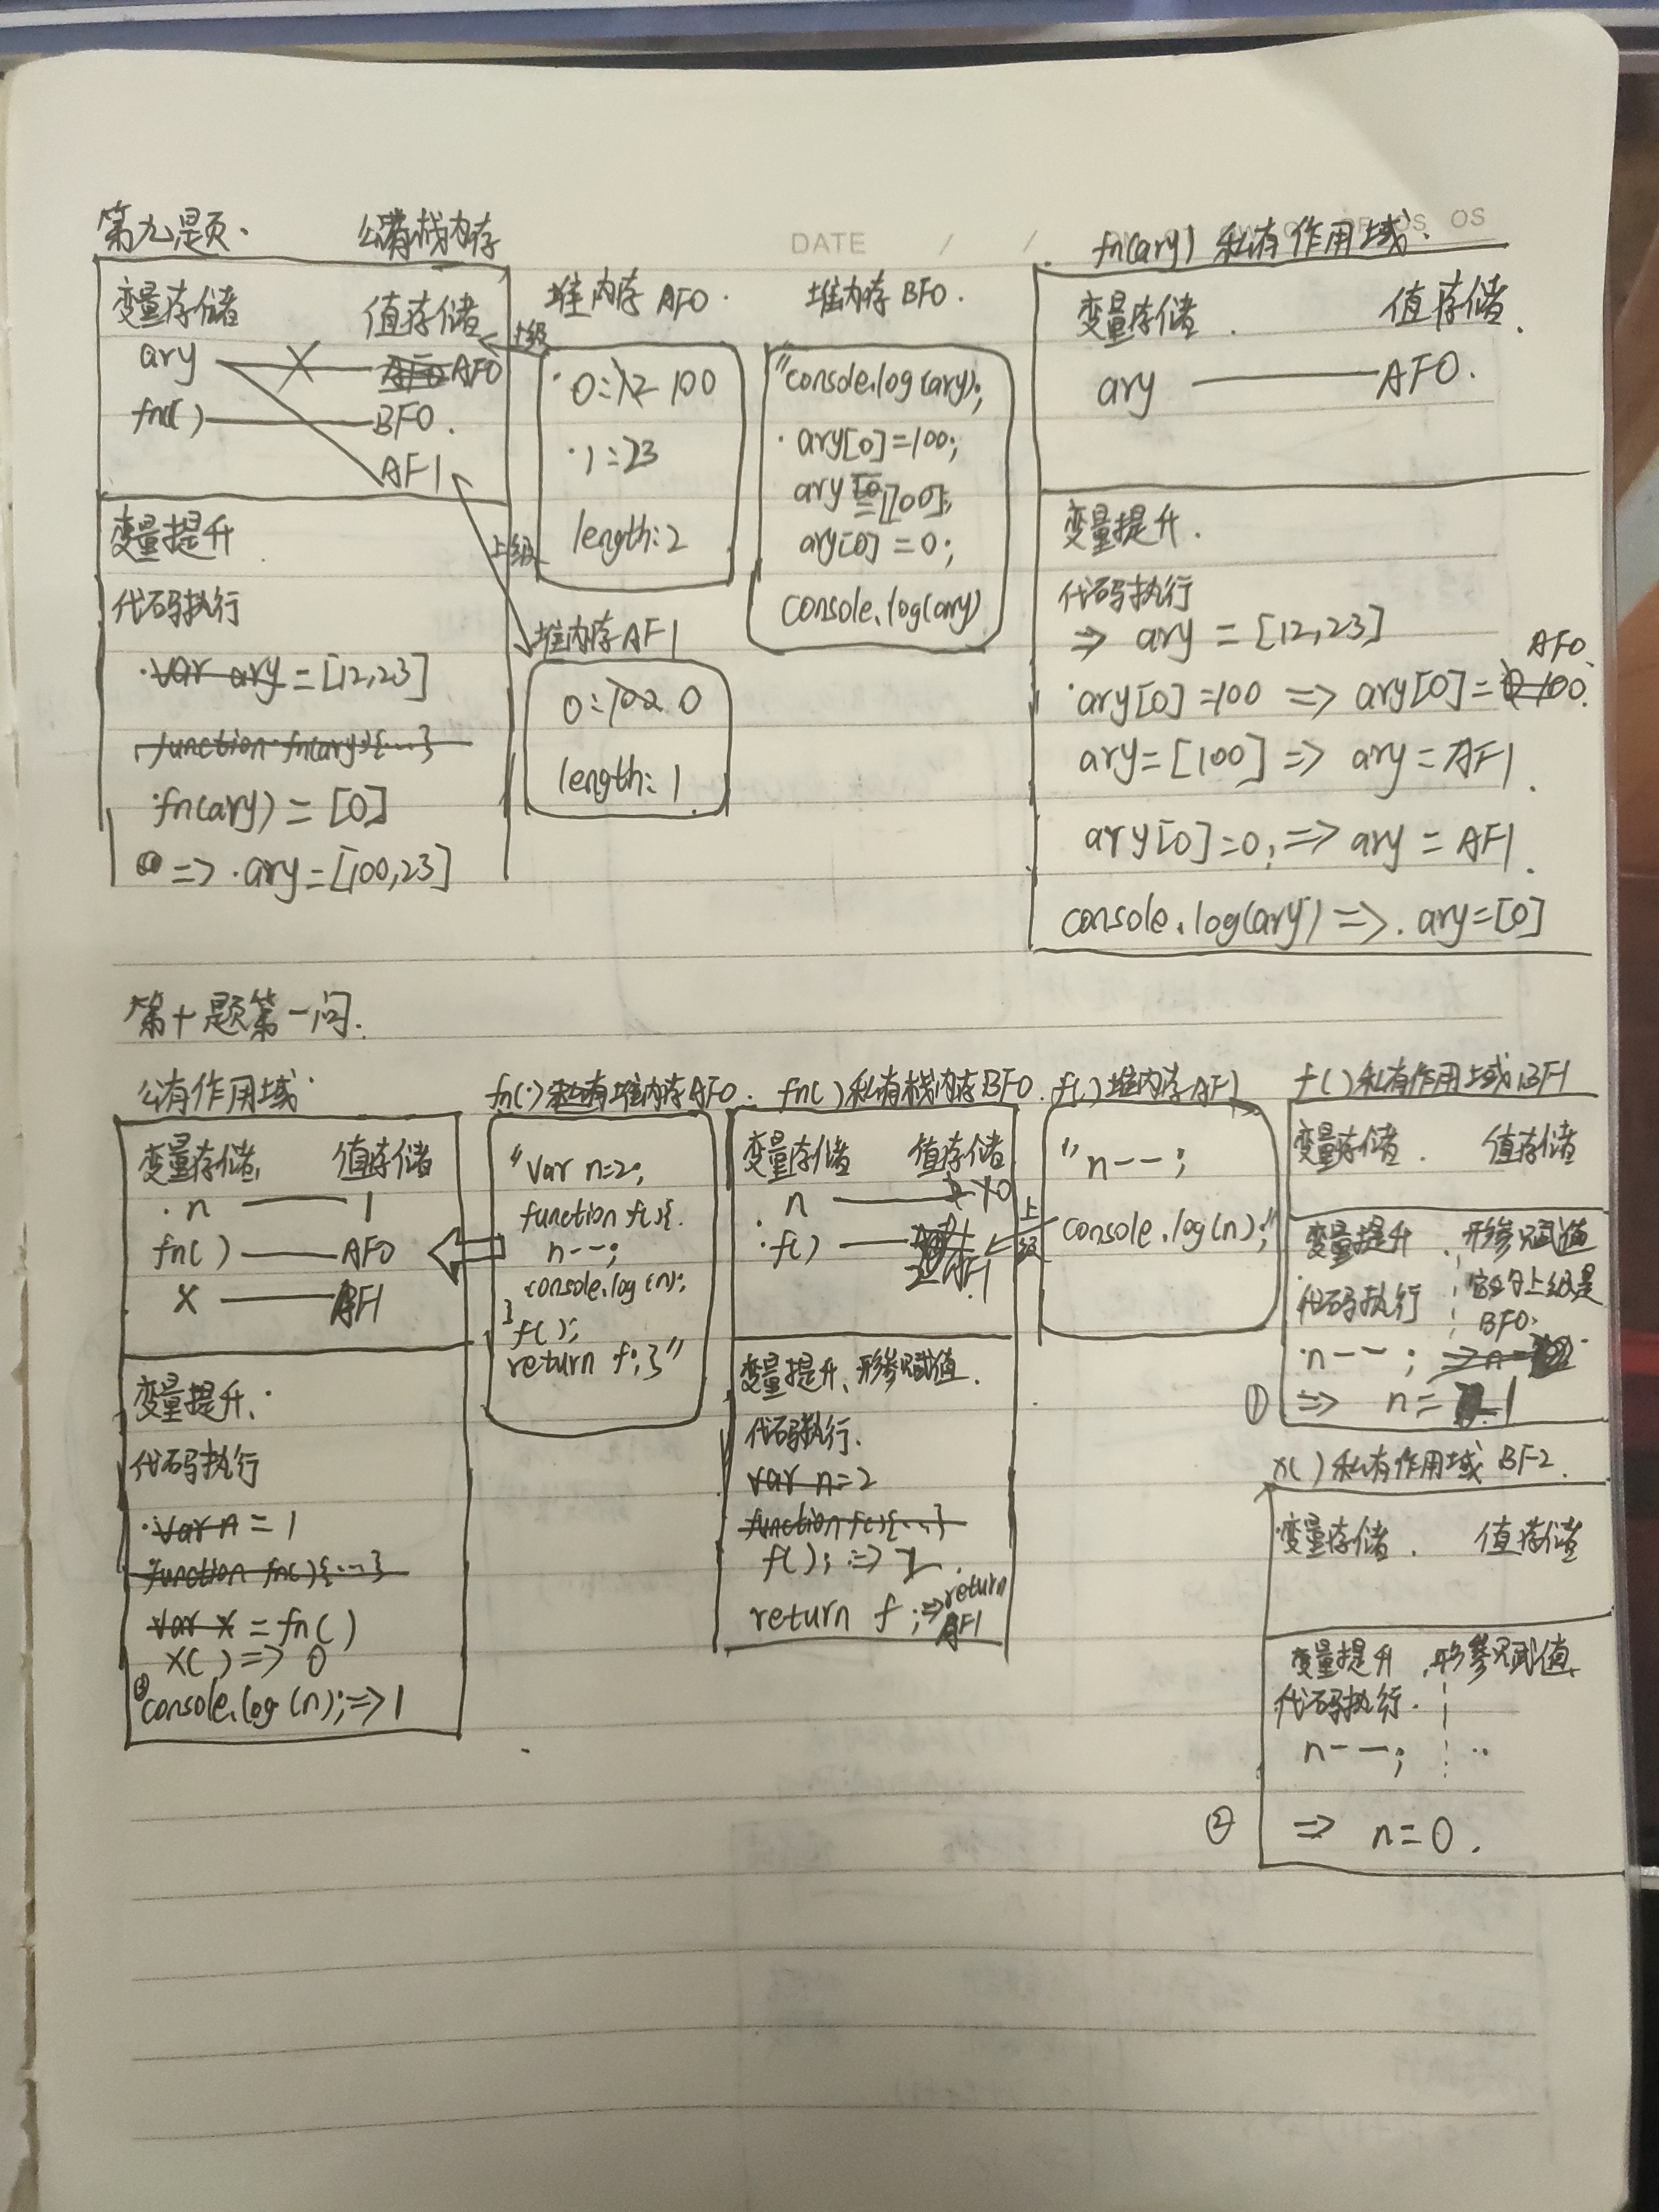 DATE / /
第九题. 公有栈内存
变量存储 值存储
ary AF0
fn() BF0.
AF1
变量提升
代码执行
·var ary = [12,23]
function fn(ary){...}
·fn(ary) = [0]
=> ·ary=[100,23]
上级
上级
堆内存 AF0.
·0:12 100
·1:23
length:2
堆内存AF1
0:100 0
length:1
堆内存 BF0.
"console.log(ary);
·ary[0]=100;
ary=[100];
ary[0]=0;
console.log(ary)
fn(ary) 私有作用域.
变量存储. 值存储.
ary AF0.
变量提升.
代码执行
=> ary = [12,23]
AF0.
·ary[0]=100 => ary[0]=100.
ary=[100] => ary=AF1.
ary[0]=0; => ary = AF1.
console.log(ary) =>. ary=[0]
第十题第一问.
公有作用域.
变量存储. 值存储
·n 1
fn() AF0
x AF1
变量提升.
代码执行
·var n = 1
function fn(){...}
var x = fn()
x() => 0
③console.log(n); => 1
fn()私有堆内存AF0.
"var n=2;
function f(){.
n--;
console.log(n);
}
f();
return f;}"
fn()私有栈内存BF0.
变量存储 值存储
n 2 1 0
·f() AF1
变量提升、形参赋值.
代码执行.
var n=2
function f(){...}
f(); => 1.
return f; => return AF1
上级
f()堆内存AF1
"n--;
console.log(n);"
f()私有作用域BF1
变量存储. 值存储
变量提升、形参赋值
代码执行 它的上级是
BF0.
·n--;
① => n = 1
x()私有作用域 BF2.
变量存储. 值存储
变量提升、形参赋值.
代码执行.
n--;
② => n=0.